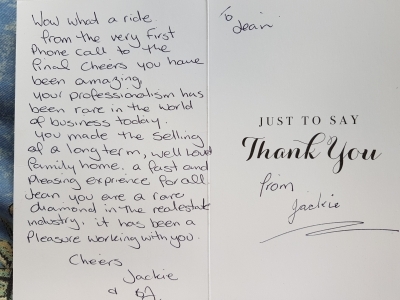 Wow what a ride
from the very first
Phone call to the
final cheers you have
been amazing,
your professionalism has
been rare in the world
of business today.
you made the selling
of a long term, well loved
family home. a fast and
pleasing exprience for all.
Jean you are a rare
diamond in the realestate
industry. it has been a
Pleasure working with you.
Cheers
Jackie
To
Jean
JUST TO SAY
Thank You
from
Jackie